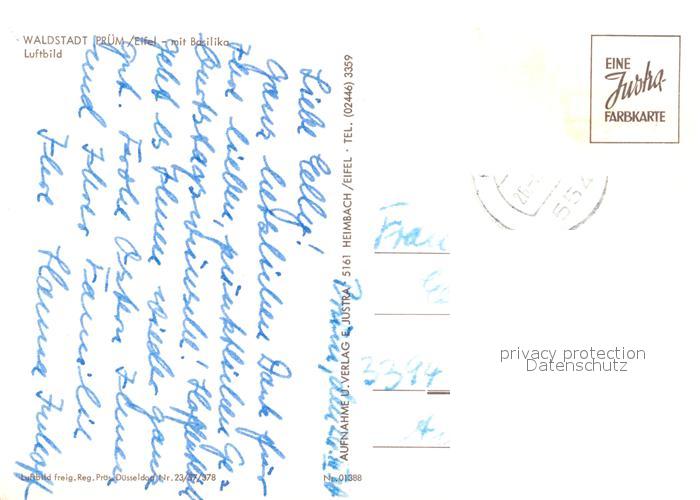 WALDSTADT PRÜM/Eifel - mit Basilika
Luftbild
Liebe Celly!
Ganz herzlichen Dank für
Ihre lieben, pünktlichen Ge-
burtstagswünsche! Hoffentlich
geht es Ihnen wieder ganz
gut. Frohe Ostern Ihnen
und Ihrer Familie
Ihre Hanna
Luftbild freig. Reg. Präs. Düsseldorf Nr. 23/37/378
Nr. 01388
AUFNAHME U. VERLAG E. JUSTRA, 5161 HEIMBACH/EIFEL · TEL. (02446) 3359
EINE
Justra-
FARBKARTE
Frau
3394
privacy protection
Datenschutz